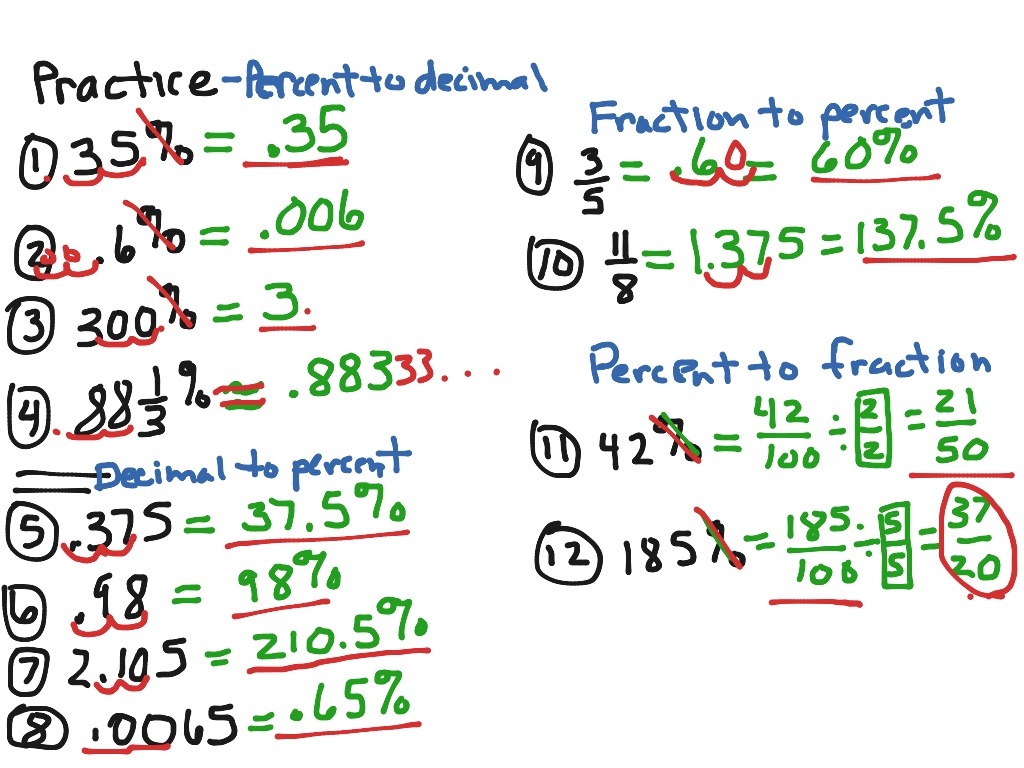 Practice - Percent to decimal
1 35% = .35
2 00.6% = .006
3 300.% = 3.
4 .88 1/3 % = .88333...
Decimal to percent
5 .375 = 37.5%
6 .98 = 98%
7 2.105 = 210.5%
8 .0065 = .65%
Fraction to percent
9 3/5 = .60 = 60%
10 11/8 = 1.375 = 137.5%
Percent to fraction
11 42% = 42/100 ÷ 2/2 = 21/50
12 185% = 185/100 ÷ 5/5 = 37/20